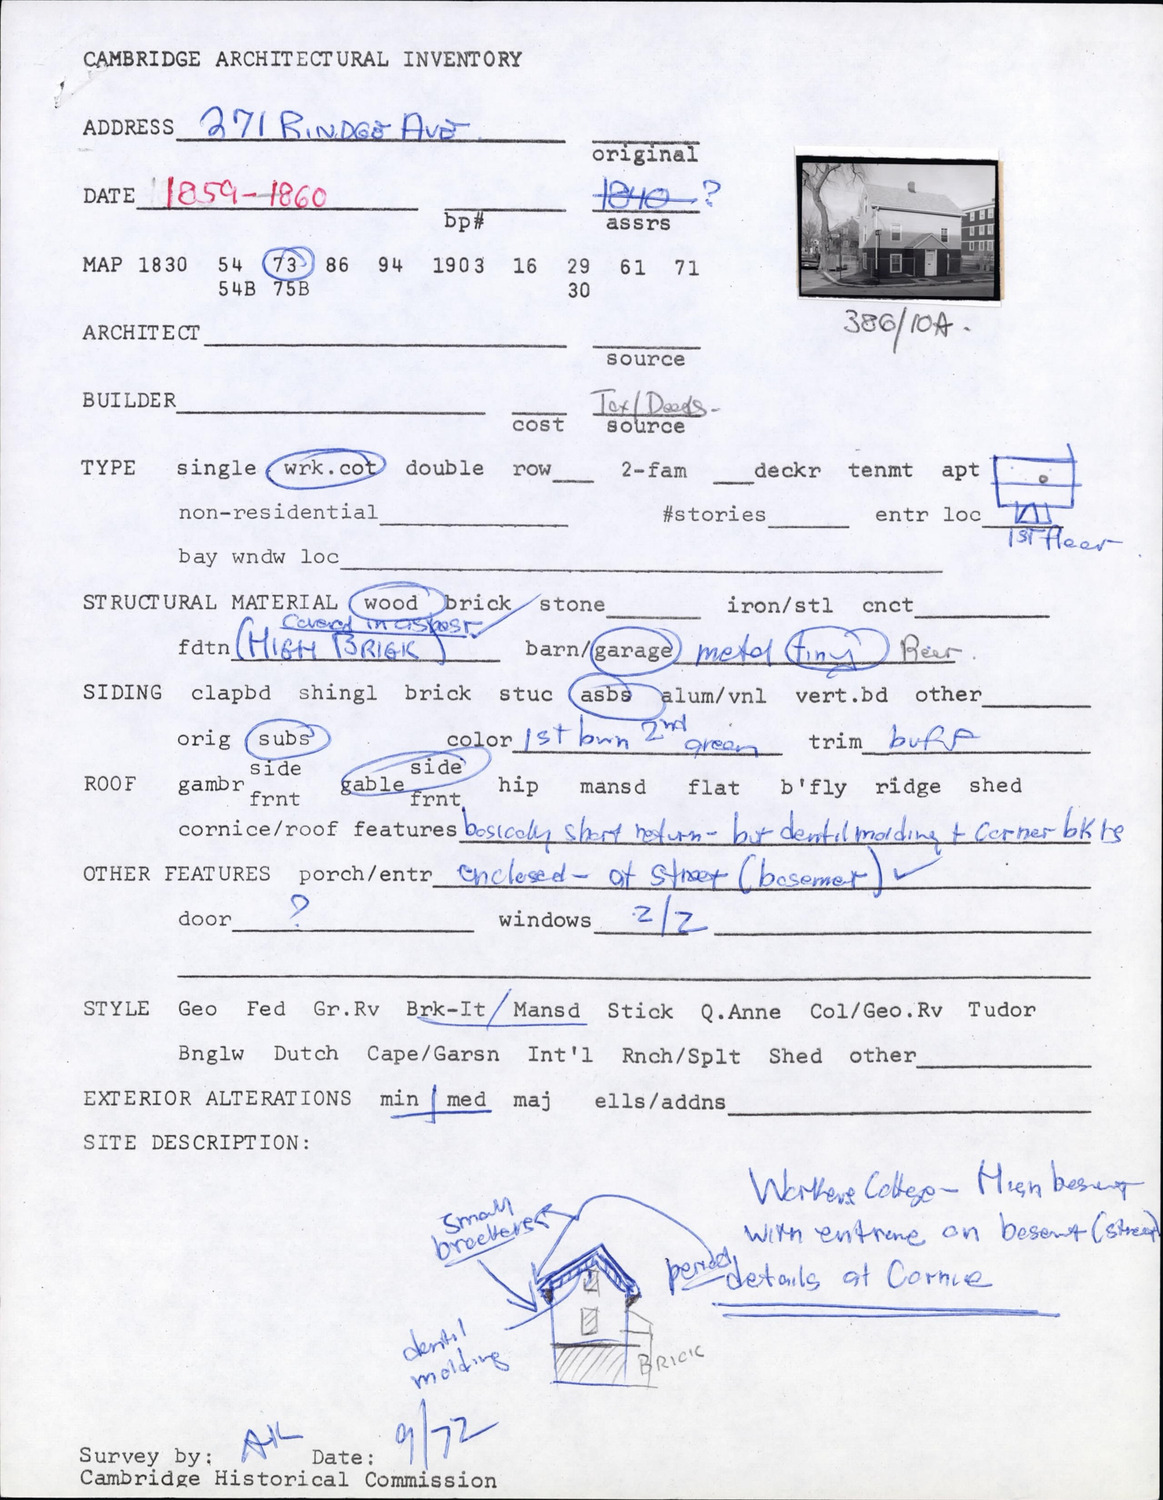 CAMBRIDGE ARCHITECTURAL INVENTORY
ADDRESS 271 RINDGE AVE original
DATE 1859-1860 bp# 1840 ? assrs
MAP 1830 54 73 86 94 1903 16 29 61 71
54B 75B 30
386/10A.
ARCHITECT source
BUILDER cost Tax/Deeds- source
TYPE single wrk.cot double row 2-fam deckr tenmt apt
non-residential #stories entr loc
1ST floor
bay wndw loc
STRUCTURAL MATERIAL wood brick stone iron/stl cnct
Covered in asbest.
fdtn (HIGH BRICK) barn/garage metal tiny Rear.
SIDING clapbd shingl brick stuc asbs alum/vnl vert.bd other
orig subs color 1st brwn 2nd green trim buff
ROOF gambr side frnt gable side frnt hip mansd flat b'fly ridge shed
cornice/roof features basically short return- but dentil molding + corner bkts
OTHER FEATURES porch/entr enclosed- at street (basement)
door ? windows 2/2
STYLE Geo Fed Gr.Rv Brk-It/Mansd Stick Q.Anne Col/Geo.Rv Tudor
Bnglw Dutch Cape/Garsn Int'l Rnch/Splt Shed other
EXTERIOR ALTERATIONS min/med maj ells/addns
SITE DESCRIPTION:
Workers Cottage- High basement
with entrance on basement (street)
period details at Cornice
small
brackets
dentil
molding
BRICK
Survey by: AK Date: 9/72
Cambridge Historical Commission